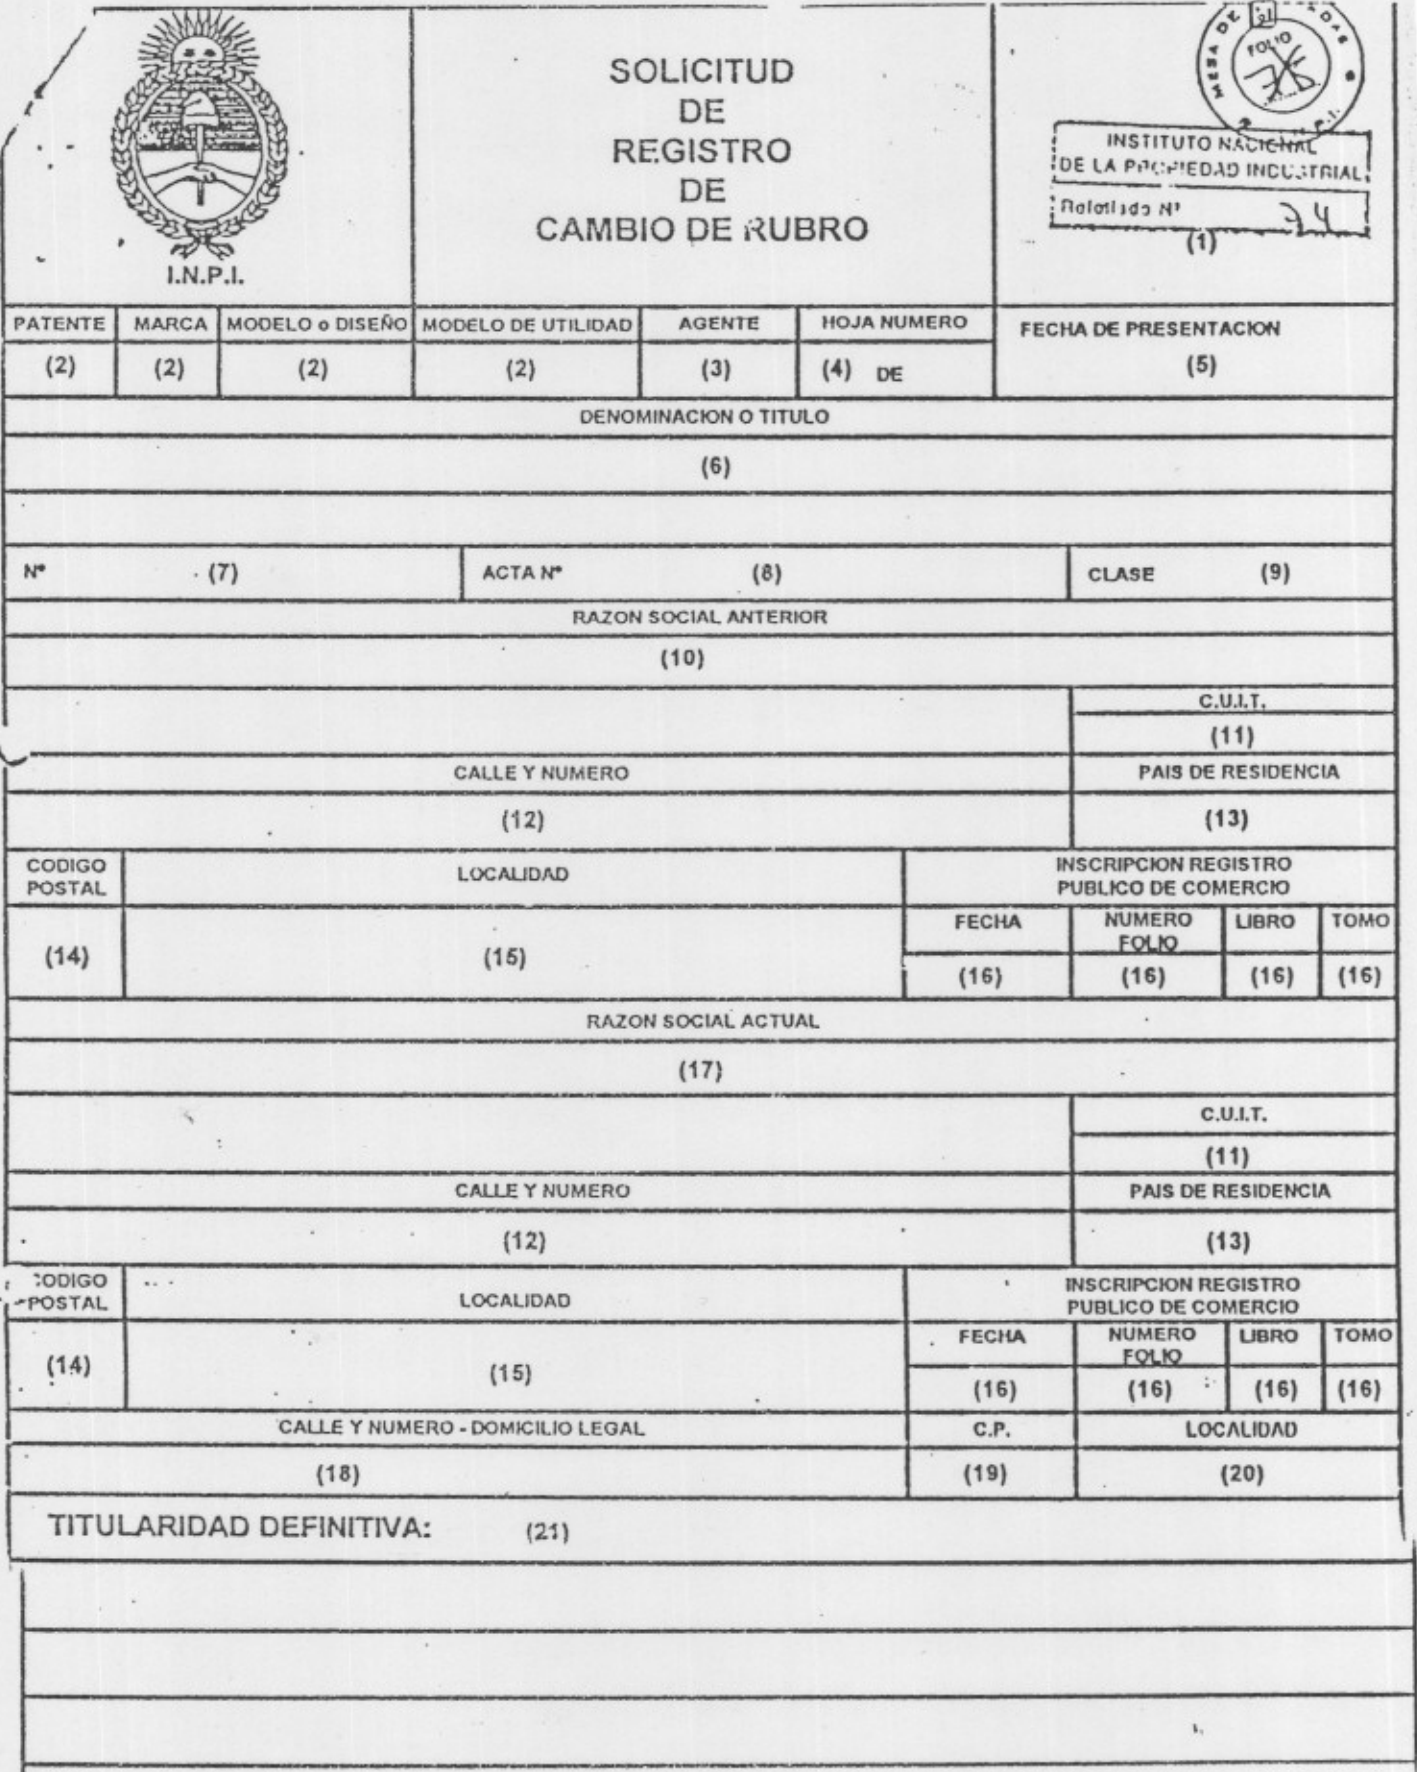 SOLICITUD
DE
REGISTRO
DE
CAMBIO DE RUBRO
I.N.P.I.
MESA DE
FOLIO
INSTITUTO NACIONAL
DE LA PROPIEDAD INDUSTRIAL
Nº 74
(1)
PATENTE MARCA MODELO o DISEÑO MODELO DE UTILIDAD AGENTE HOJA NUMERO FECHA DE PRESENTACION
(2) (2) (2) (2) (3) (4) DE (5)
DENOMINACION O TITULO
(6)
Nº (7) ACTA Nº (8) CLASE (9)
RAZON SOCIAL ANTERIOR
(10)
C.U.I.T.
(11)
CALLE Y NUMERO PAIS DE RESIDENCIA
(12) (13)
CODIGO POSTAL LOCALIDAD INSCRIPCION REGISTRO PUBLICO DE COMERCIO
FECHA NUMERO FOLIO LIBRO TOMO
(14) (15) (16) (16) (16) (16)
RAZON SOCIAL ACTUAL
(17)
C.U.I.T.
(11)
CALLE Y NUMERO PAIS DE RESIDENCIA
(12) (13)
CODIGO POSTAL LOCALIDAD INSCRIPCION REGISTRO PUBLICO DE COMERCIO
FECHA NUMERO FOLIO LIBRO TOMO
(14) (15) (16) (16) (16) (16)
CALLE Y NUMERO - DOMICILIO LEGAL C.P. LOCALIDAD
(18) (19) (20)
TITULARIDAD DEFINITIVA: (21)